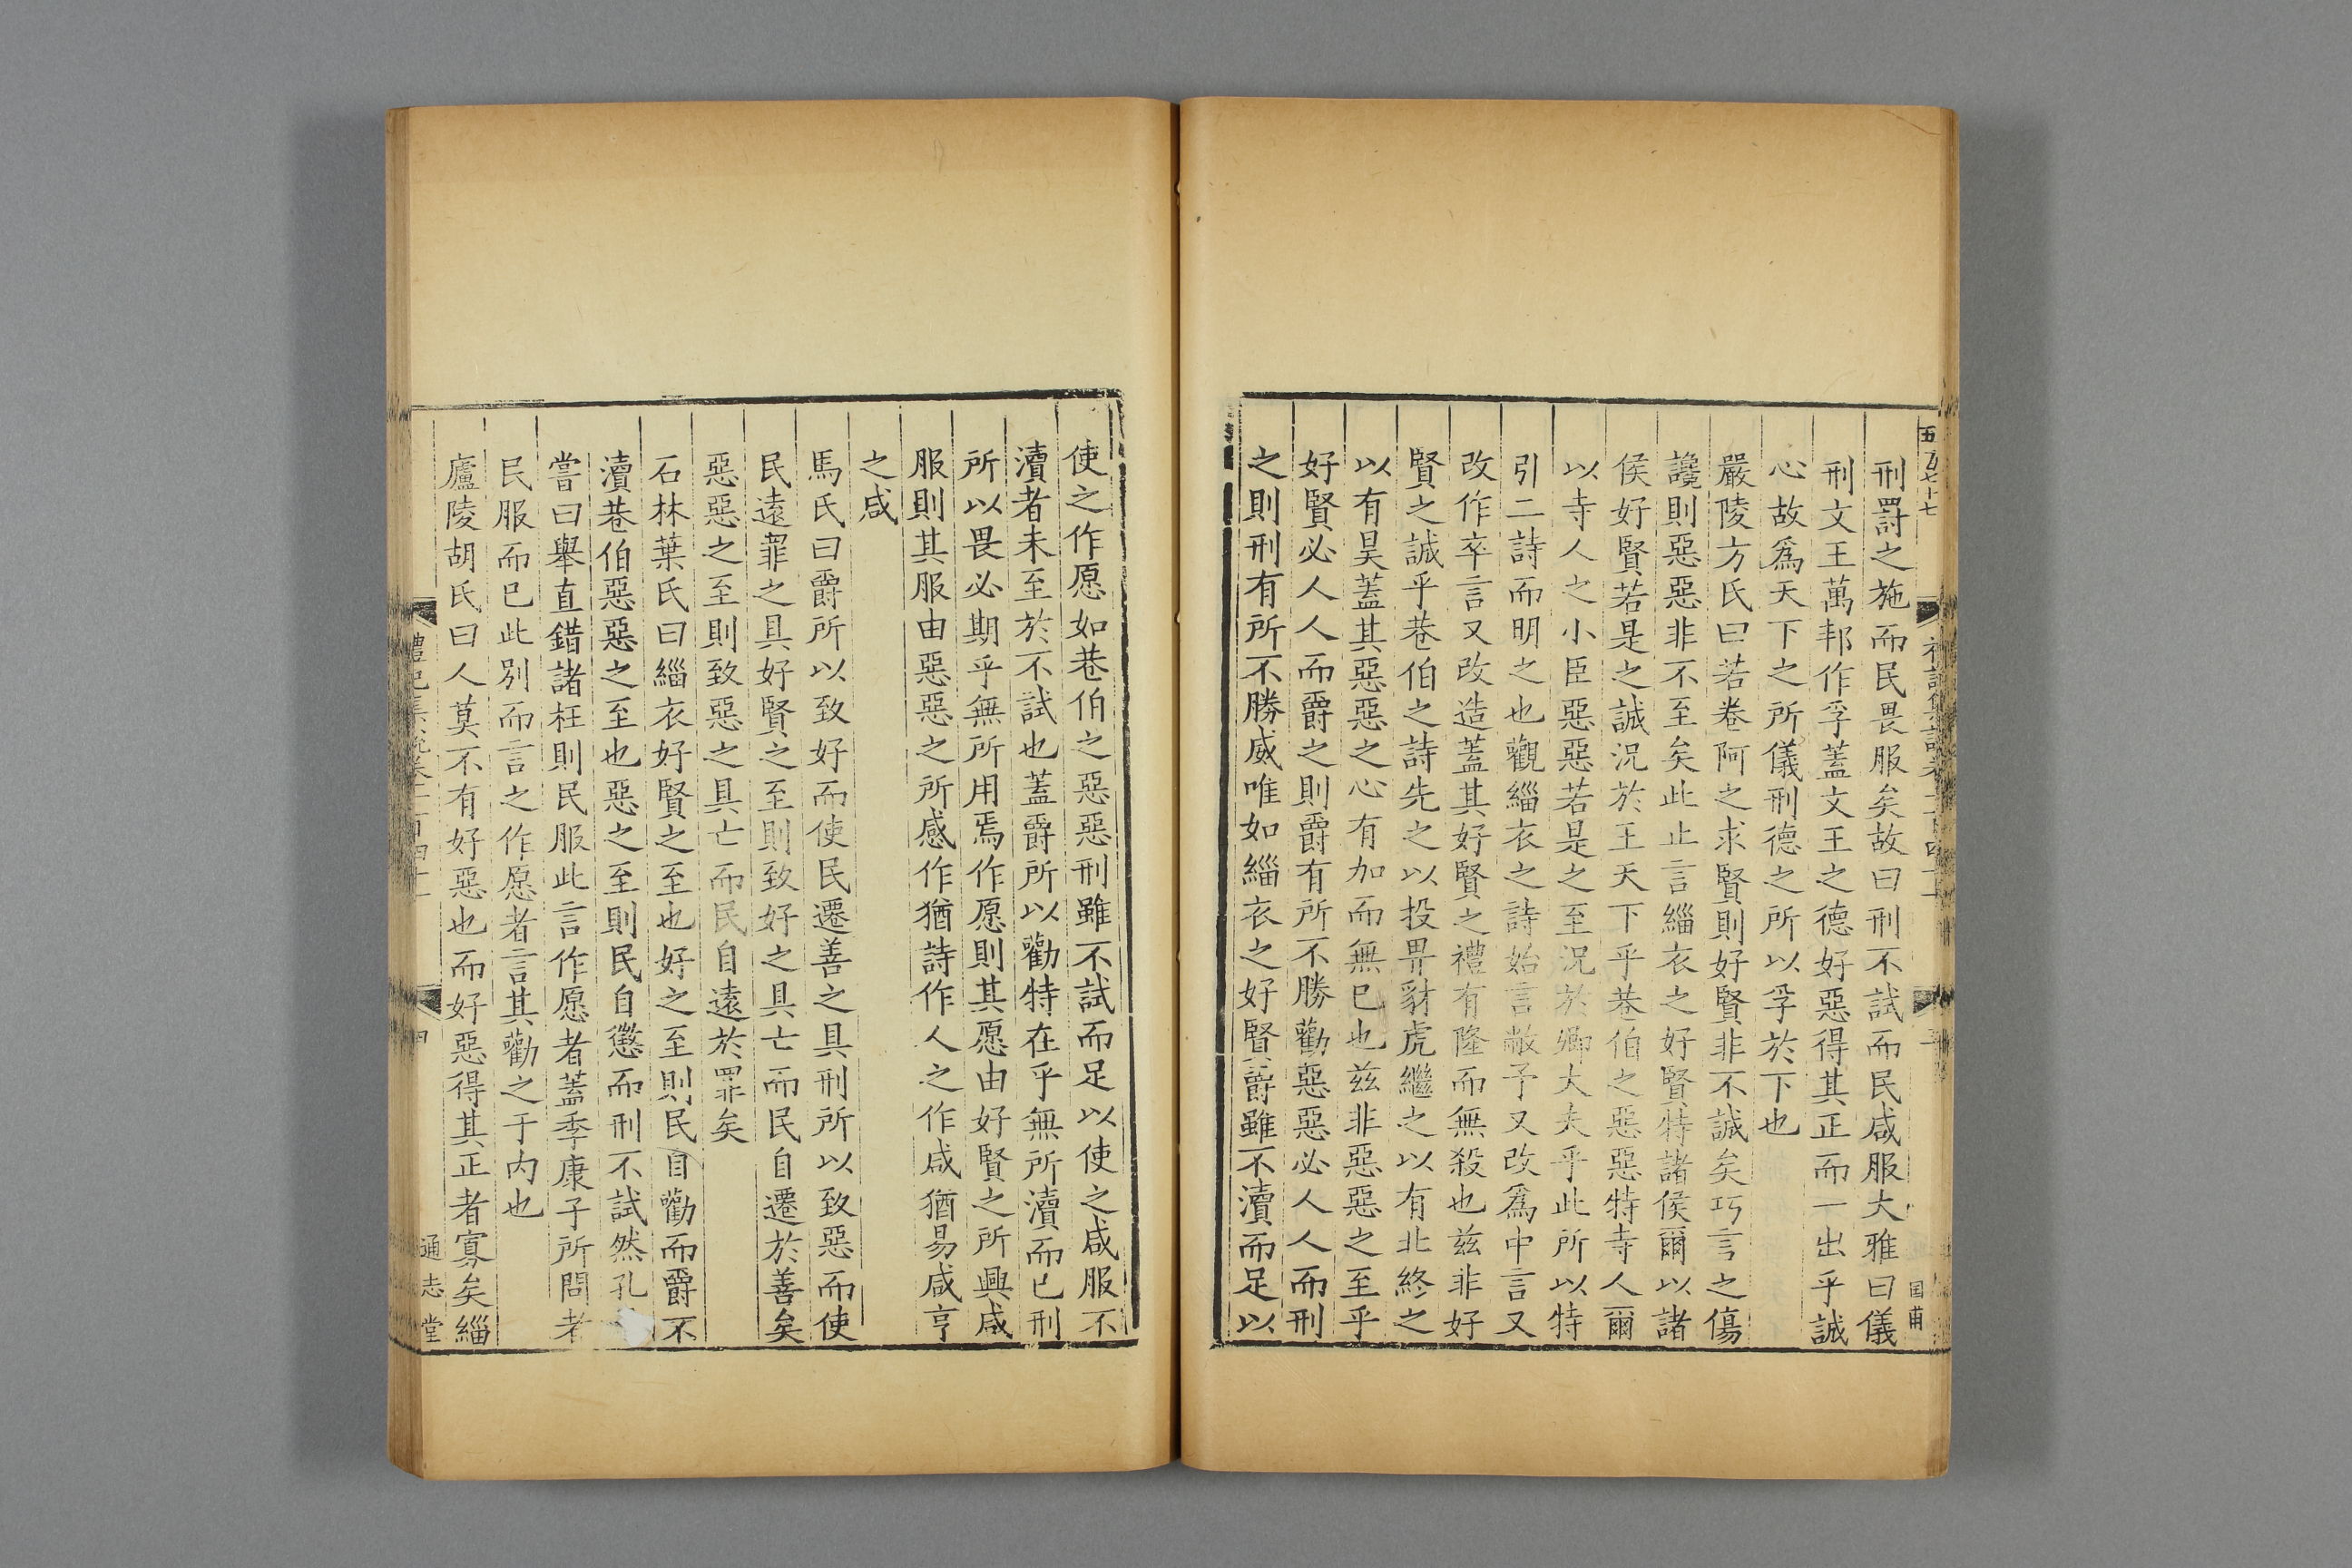 刑罰之施而民畏服矣故曰刑不試而民咸服大雅曰儀
刑文王萬邦作孚蓋文王之德好惡得其正而一出乎誠
心故爲天下之所儀刑德之所以孚於下也
嚴陵方氏曰若卷阿之求賢則好賢非不誠矣巧言之傷
讒則惡惡非不至矣此止言緇衣之好賢特諸侯爾以諸
侯好賢若是之誠況於王天下乎巷伯之惡惡特寺人爾
以寺人之小臣惡惡若是之至況於卿大夫乎此所以特
引二詩而明之也觀緇衣之詩始言敝予又改爲中言又
改作卒言又改造蓋其好賢之禮有隆而無殺也兹非好
賢之誠乎巷伯之詩先之以投畀豺虎繼之以有北終之
以有昊蓋其惡惡之心有加而無已也兹非惡惡之至乎
好賢必人人而爵之則爵有所不勝勸惡惡必人人而刑
之則刑有所不勝威唯如緇衣之好賢爵雖不瀆而足以
使之作愿如巷伯之惡惡刑雖不試而足以使之咸服不
瀆者未至於不試也蓋爵所以勸特在乎無所瀆而已刑
所以畏必期乎無所用焉作愿則其愿由好賢之所興咸
服則其服由惡惡之所感作猶詩作人之作咸猶易咸亨
之咸
馬氏曰爵所以致好而使民遷善之具刑所以致惡而使
民遠罪之具好賢之至則致好之具亡而民自遷於善矣
惡惡之至則致惡之具亡而民自遠於罪矣
石林葉氏曰緇衣好賢之至也好之至則民自勸而爵不
瀆巷伯惡惡之至也惡之至則民自懲而刑不試然孔
嘗曰舉直錯諸枉則民服此言作愿者蓋季康子所問者
民服而已此別而言之作愿者言其勸之于内也
廬陵胡氏曰人莫不有好惡也而好惡得其正者寡矣緇
禮記集說卷
四
通志堂